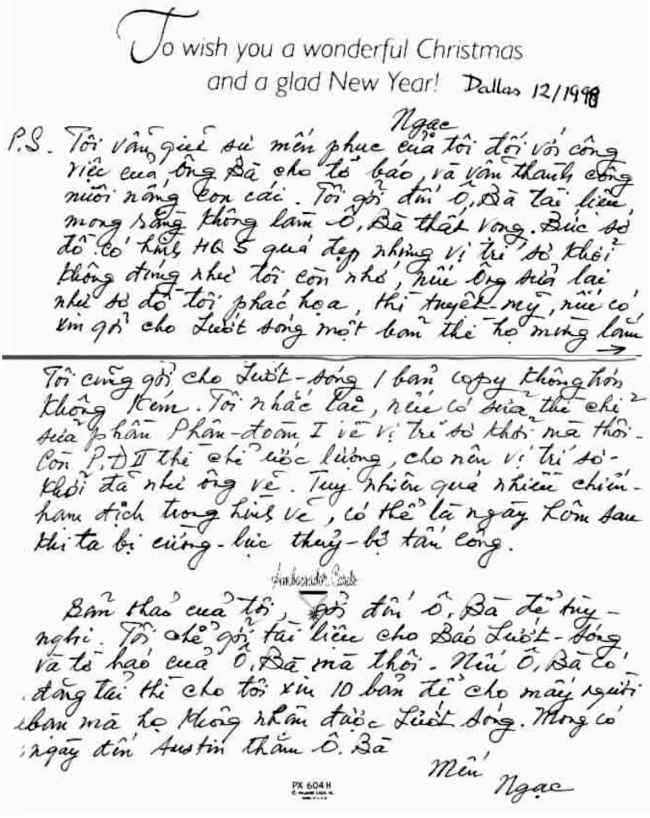 To wish you a wonderful Christmas
and a glad New Year! Dallas 12/1998
Ngạc
P.S. Tôi vẫn giữ sự mến phục của tôi đối với công
việc của Ông Bà cho tờ báo, và vẫn thành công
nuôi nấng con cái. Tôi gởi đến Ô. Bà tài liệu
mong rằng không làm Ô. Bà thất vọng. Bức sơ
đồ có hình HQ5 quá đẹp nhưng vị trí sơ khởi
không đúng như tôi còn nhớ, nếu Ông sửa lại
như sơ đồ tôi phác họa, thì tuyệt mỹ, nếu có
xin gởi cho Lướt Sóng một bản thì họ mừng lắm
Tôi cũng gởi cho Lướt-sóng 1 bản copy không hơn
không kém. Tôi nhắc lại, nếu có sửa thì chỉ
sửa phần Phân-đoàn I về vị trí sơ khởi mà thôi.
Còn P.Đ II thì chỉ ước lượng, cho nên vị trí sơ-
khởi đã như ông vẽ. Tuy nhiên quá nhiều chiến-
hạm địch trong hình vẽ, có thể là ngày hôm sau
khi ta bị cưỡng-lực thủy-bộ tấn công.
Ambassador Cards
Bản thảo của tôi, gởi đến Ô. Bà để tùy-
nghi. Tôi chỉ gởi tài liệu cho Báo Lướt-Sóng
và tờ báo của Ô. Bà mà thôi. Nếu Ô. Bà có
đăng tải thì cho tôi xin 10 bản để cho mấy người
bạn mà họ không nhận được Lướt Sóng. Mong có
ngày đến Austin thăm Ô. Bà
Mến
Ngạc
PX 604H